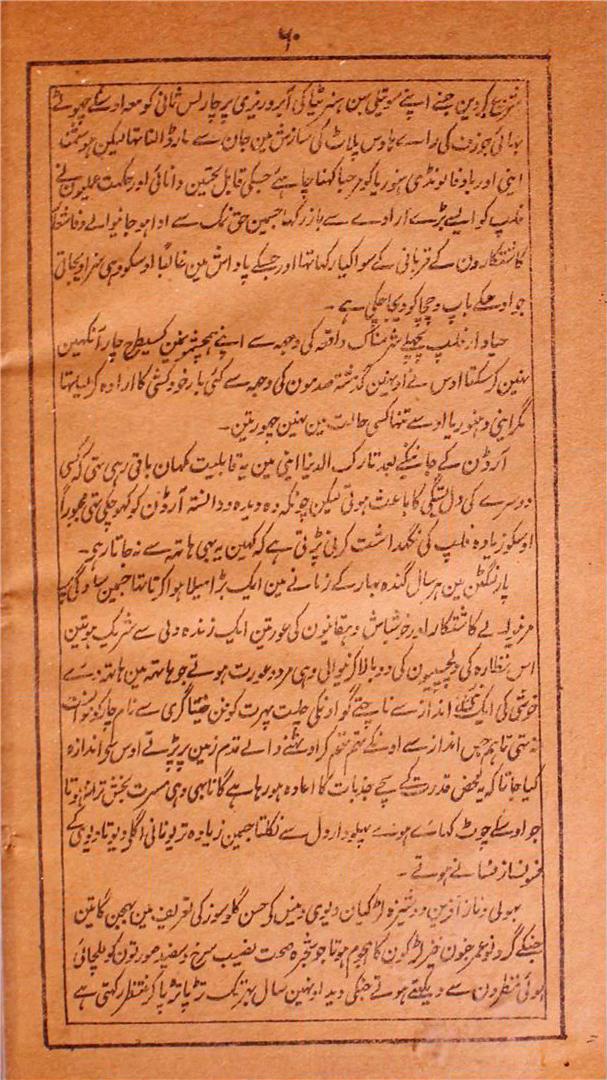 ۶۰
کر دین جسنے اپنے سوتیلی بہن ہنریٹیا کی آبروریزی پر چارلس ثانی کو معہ اوسکے چھوٹے
بھائی جوزف کی راے ہاوس پلاٹ کی سازش مین جان سے مار ڈالنا تھا لیکن
اینی اور باوفا لونڈی ہنوریا کو مرحبا کہنا چاہئے جسکی قابل تحسین دانائی اور حکمت عملیون نے
فلپ کو ایسے بڑے ارادے سے باز رکہا جسمین حق نمک سے ادا ہو جانیوالے وفا شعار
کاشتکارون کے قربانی کے سوا کیا رکہا تہا اور جسکے پاداش مین غالباً اوسکو وہی سزا دیجاتی
جو اوسکے باپ و چچا کو دیجا چکی ہے ۔
حیادار فلپ پچھلے شرمناک واقعہ کی وجہہ سے اپنے ہمچشمون کسیطرح چار آنکہین
نہین کر سکتا اوس نے اونہین گذشتہ صدمون کی وجہہ سے کئی بار خودکشی کا ارادہ کر لیا تہا
مگر اینی و ہنوریا اوسے تنہا کسی حالت مین نہین چہوڑتین ۔
آرڈن کے جانیکے بعد تارک الدنیا اینی مین یہ قابلیت کہان باقی رہی تہی کہ کسی
دوسرے کی دل بستگی کا باعث ہوتی لیکن چونکہ وہ دیدہ و دانستہ آرڈن کو کہو چکی تہی مجبوراً
اوسکو زیادہ فلپ کی نگہداشت کرنی پڑتی ہے کہ کہین یہ بہی ہاتہہ سے نہ جاتا رہے ۔
پارنگٹن مین ہر سال گندہ بہار کے زمانے مین ایک بڑا میلا ہوا کرتا تہا جسمین سادگی پر
مرنیوالے کاشتکار اور خوشباش دہقانیون کی عورتین ایک زندہ دلی سے شریک ہوتین
اس نظارہ کی دلچسپیون کی دوبالا کرنیوالی وہی مرد و عورت ہوتے جو ہاتہہ مین ہاتہہ دے
خوشی کی ایک انداز سے ناچتے گو اونکی چلت پہرت کو فن خنیاگری سے نام
نہ تہی تاہم جس انداز سے اونکے تہم تہم کر اوٹہنے والے قدم زمین پر پڑتے اوس سے اندازہ
کیا جاتا کہ محض قدرت کے سچے جذبات کا اعادہ ہو رہا ہے گانا بہی وہی مسرت بخش ترانہ ہوتا
جو اوسکے چوٹ کہاے ہوے پہلودار دل سے نکلتا جسمین زیادہ تر یونانی اگلی دیوتا دیوی کے
فسانے ہوتے ۔
بہولی و ناز آفرین دوشیزہ لڑکیان دیوی وینس کی حسن گلوسوز کی تعریف مین بہجن گاتین
جنکے گرد نو عمر لڑکون کا ہجوم ہوتا جو صحت نصیب سرخ و سفید صورتون کو للچائی
ہوئی نظرون سے دیکہتے ہوتے جنکی دید اونہین سال بہر تک تڑپا تڑپا کر منتظر رکہتی ہے